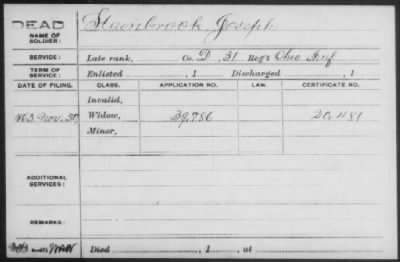 DEAD Stambrook, Joseph
NAME OF SOLDIER:
SERVICE: Late rank, Co. D, 31 Reg't Ohio Inf
TERM OF SERVICE: Enlisted , 1 Discharged , 1
DATE OF FILING. CLASS. APPLICATION NO. LAW. CERTIFICATE NO.
Invalid,
1863 Nov. 30 Widow, 39,786 20,481
Minor,
ADDITIONAL SERVICES:
REMARKS:
Died , 1 , at